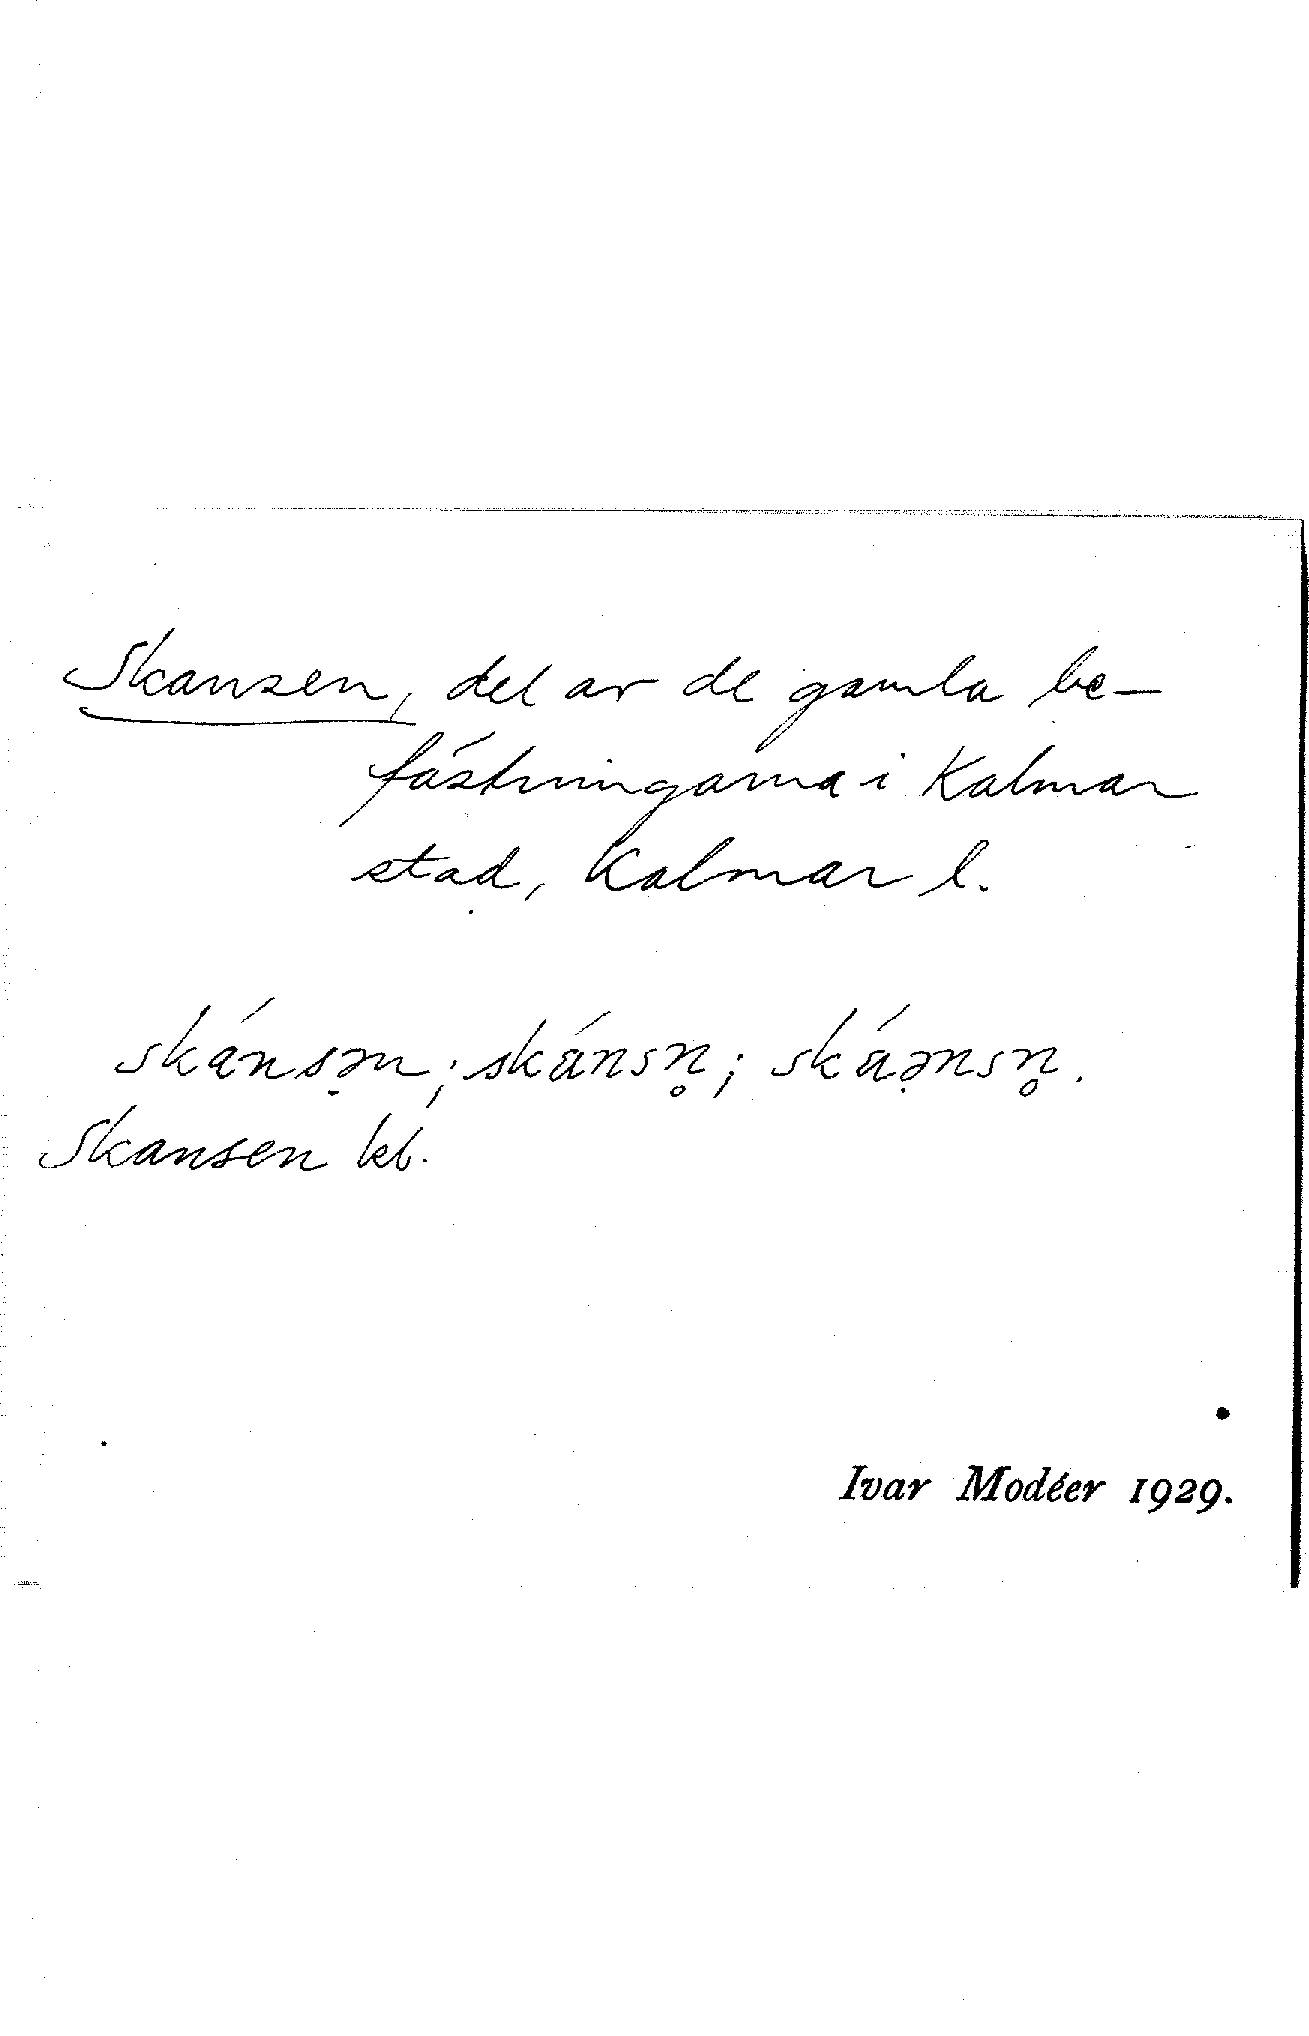 Skansen, del av de gamla be-
fästningarna i Kalmar
stad, Kalmar l.
skánsən; skánsn̥; skáənsn̥.
Skansen kb.
Ivar Modéer 1929.